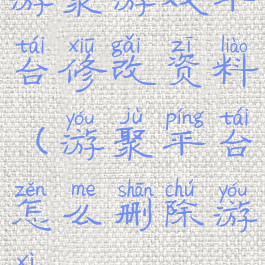 游聚游戏平
tái xiū gǎi zī liào
台修改资料
yóu jù píng tái
（游聚平台
zěn me shān chú yóu
怎么删除游
xì